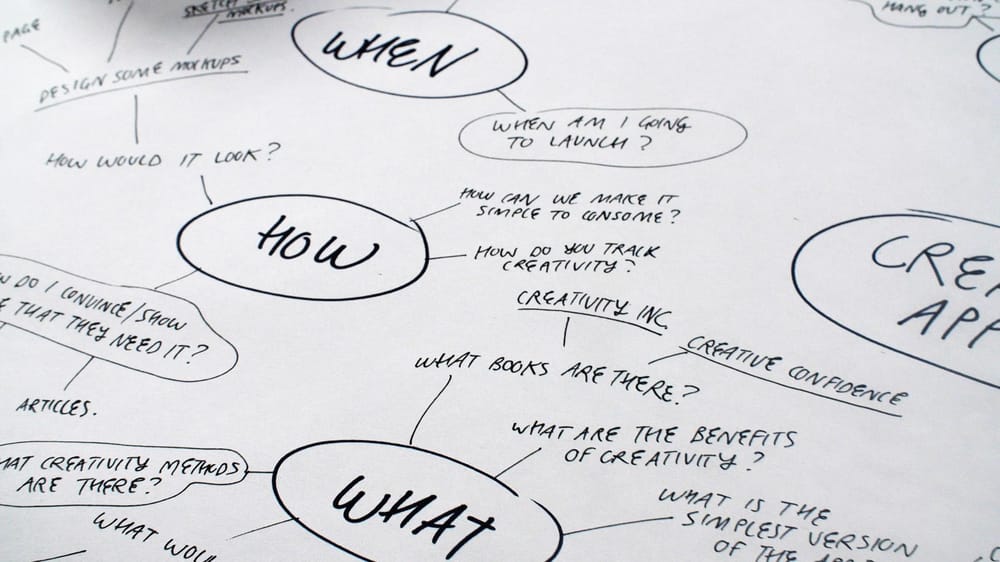 PAGE
SKETCH
MOCKUPS.
DESIGN SOME MOCKUPS
HOW WOULD IT LOOK?
WHEN
WHEN AM I GOING
TO LAUNCH?
HANG OUT?
HOW
HOW CAN WE MAKE IT
SIMPLE TO CONSOME?
HOW DO YOU TRACK
CREATIVITY?
DO I CONVINCE/SHOW
THAT THEY NEED IT?
ARTICLES.
CREA
APP
CREATIVITY INC.
WHAT BOOKS ARE THERE?
CREATIVE CONFIDENCE
WHAT ARE THE BENEFITS
OF CREATIVITY?
CREATIVITY METHODS
ARE THERE?
WHAT
WHAT WOUL
WHAT IS THE
SIMPLEST VERSION
OF THE APP?